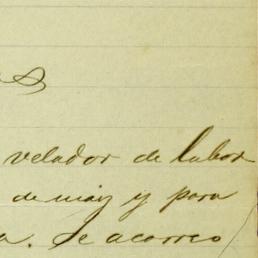 velador de labor
de maiz y para
a. Se acarreo